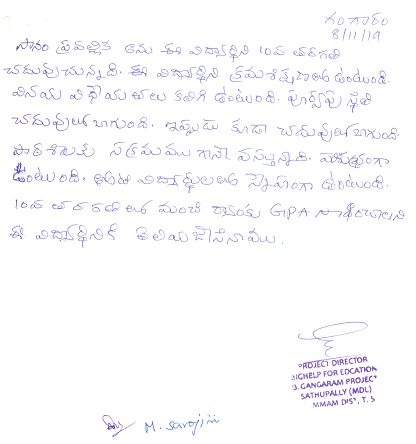 గంగారం
8/11/19
సానం ప్రవల్లిక అను ఈ విద్యార్థిని 10వ తరగతి
చదువుచున్నది. ఈ విద్యార్థిని క్రమశిక్షణతో ఉంటుంది.
వినయ విధేయతలు కలిగి ఉంటుంది. పూర్వపు స్థితి
చదువులో బాగుంది. ఇప్పుడు కూడా చదువులో బాగుంది.
పాఠశాలకు సక్రమముగానే వస్తున్నది.
ఉంటుంది. తోటి విద్యార్థులతో స్నేహంగా ఉంటుంది.
10వ తరగతిలో మంచి ర్యాంకు GPA సాధించాలని
ఈ విద్యార్థినికి తెలియజేసినాము.
PROJECT DIRECTOR
HIGHELP FOR EDCATION
B. GANGARAM PROJECT
SATHUPALLY (MDL)
MMAM DIST, T. S
M. Sarojini